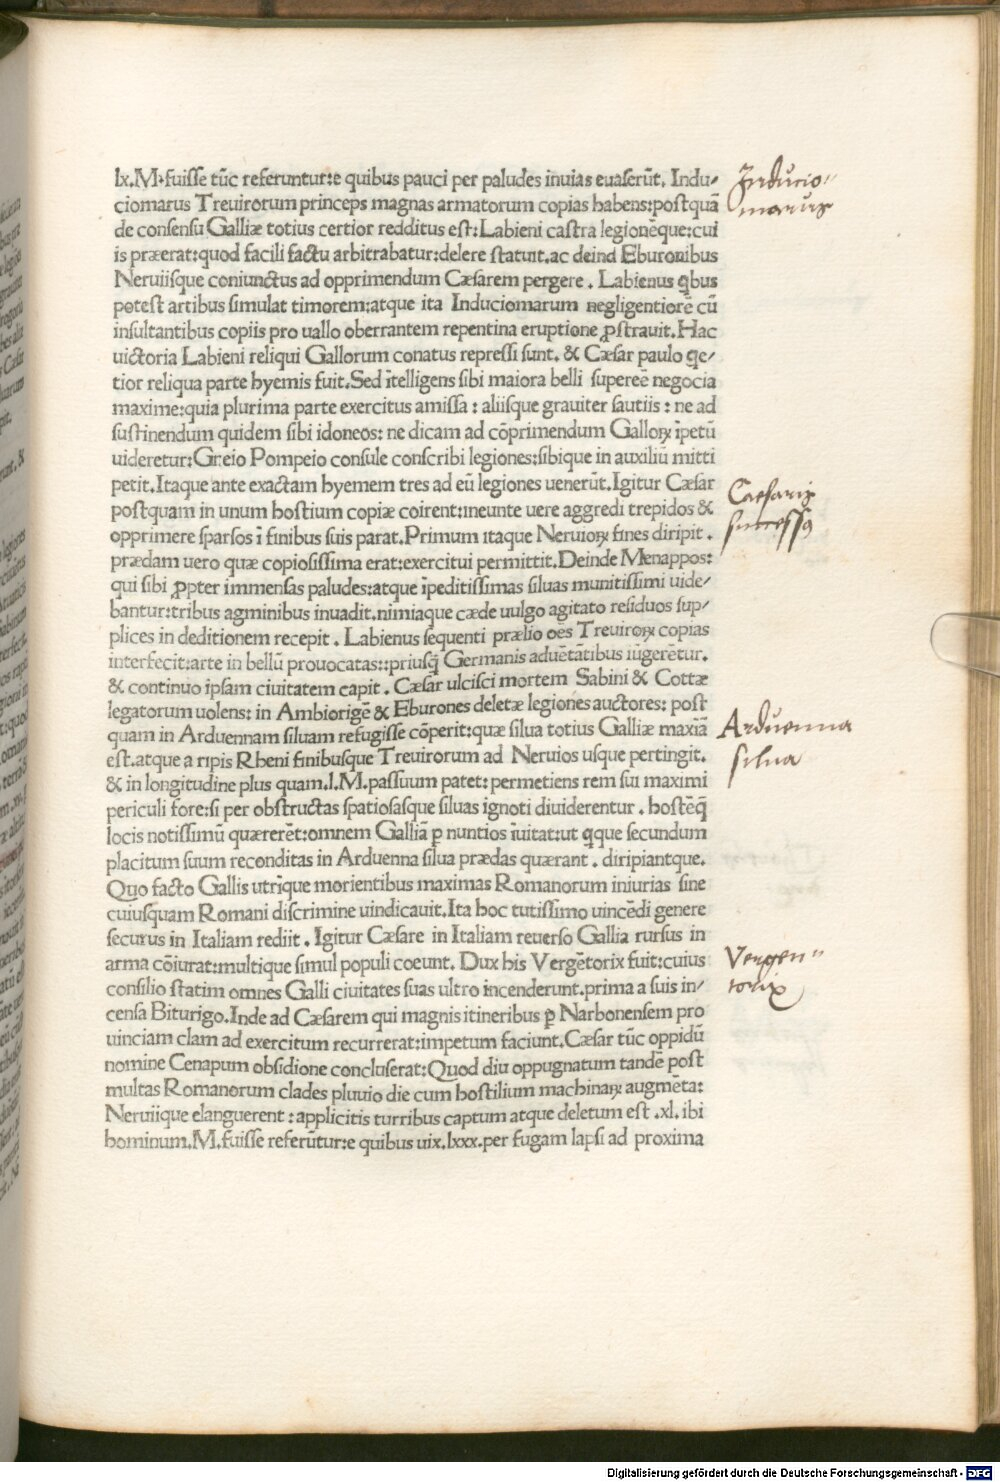 lx.M.fuisse tūc referuntur:e quibus pauci per paludes inuias euaserūt. Indu/
ciomarus Treuirorum princeps magnas armatorum copias habens:postquā
de consensu Galliæ totius certior redditus est:Labieni castra legionēque:cui
is præerat:quod facili factu arbitrabatur:delere statuit.ac deind Eburonibus
Neruiisque coniunctus ad opprimendum Cæsarem pergere. Labienus ꝗbus
potest artibus simulat timorem:atque ita Induciomarum negligentiorē cū
insultantibus copiis pro uallo oberrantem repentina eruptione ꝓstrauit. Hac
uictoria Labieni reliqui Gallorum conatus repressi sunt. & Cæsar paulo qe/
tior reliqua parte hyemis fuit.Sed ītelligens sibi maiora belli supereē negocia
maxime:quia plurima parte exercitus amissa : aliisque grauiter sautiis : ne ad
sustinendum quidem sibi idoneos: ne dicam ad cōprimendum Galloꝝ īpetū
uideretur:Gneio Pompeio consule conscribi legiones:sibique in auxiliū mitti
petit.Itaque ante exactam hyemem tres ad eū legiones uenerūt.Igitur Cæsar
postquam in unum hostium copiæ coirent:ineunte uere aggredi trepidos &
opprimere sparsos ī finibus suis parat.Primum itaque Neruioꝝ fines diripit.
prædam uero quæ copiosissima erat:exercitui permittit.Deinde Menappos:
qui sibi ꝓpter immensas paludes:atque īpeditissimas siluas munitissimi uide/
bantur:tribus agminibus inuadit.nimiaque cæde uulgo agitato residuos sup/
plices in deditionem recepit. Labienus sequenti prælio oēs Treuiroꝝ copias
interfecit:arte in bellū prouocatas::priusq̃ Germanis aduētātibus iūgerētur.
& continuo ipsam ciuitatem capit. Cæsar ulcisci mortem Sabini & Cottæ
legatorum uolens: in Ambiorigē & Eburones deletæ legiones auctores: post
quam in Arduennam siluam refugisse cōperit:quæ silua totius Galliæ maxīā
est.atque a ripis Rheni finibusque Treuirorum ad Neruios usque pertingit.
& in longitudine plus quam.l.M.passuum patet:permetiens rem sui maximi
periculi fore:si per obstructas spatiosasque siluas ignoti diuiderentur. hostēq̃
locis notissimū quærerēt:omnem Galliā ꝑ nuntios īuitat:ut ꝗque secundum
placitum suum reconditas in Arduenna silua prædas quærant. diripiantque.
Quo facto Gallis utrīque morientibus maximas Romanorum iniurias sine
cuiusquam Romani discrimine uindicauit.Ita hoc tutissimo uincēdi genere
securus in Italiam rediit. Igitur Cæsare in Italiam reuerso Gallia rursus in
arma cōiurat:multique simul populi coeunt. Dux his Vergētorix fuit:cuius
consilio statim omnes Galli ciuitates suas ultro incenderunt.prima a suis in/
censa Biturigo.Inde ad Cæsarem qui magnis itineribus ꝑ Narbonensem pro
uinciam clam ad exercitum recurrerat:impetum faciunt.Cæsar tūc oppidū
nomine Cenapum obsidione concluserat:Quod diu oppugnatum tandē post
multas Romanorum clades pluuio die cum hostilium machinaꝝ augmēta:
Neruiique elanguerent : applicitis turribus captum atque deletum est .xl. ibi
hominum.M.fuisse referūtur:e quibus uix.lxxx.per fugam lapsi ad proxima
Inducio"
marus
Caesaris
successus
Arduenna
silua
Vergen"
torix
Digitalisierung gefördert durch die Deutsche Forschungsgemeinschaft - DFG